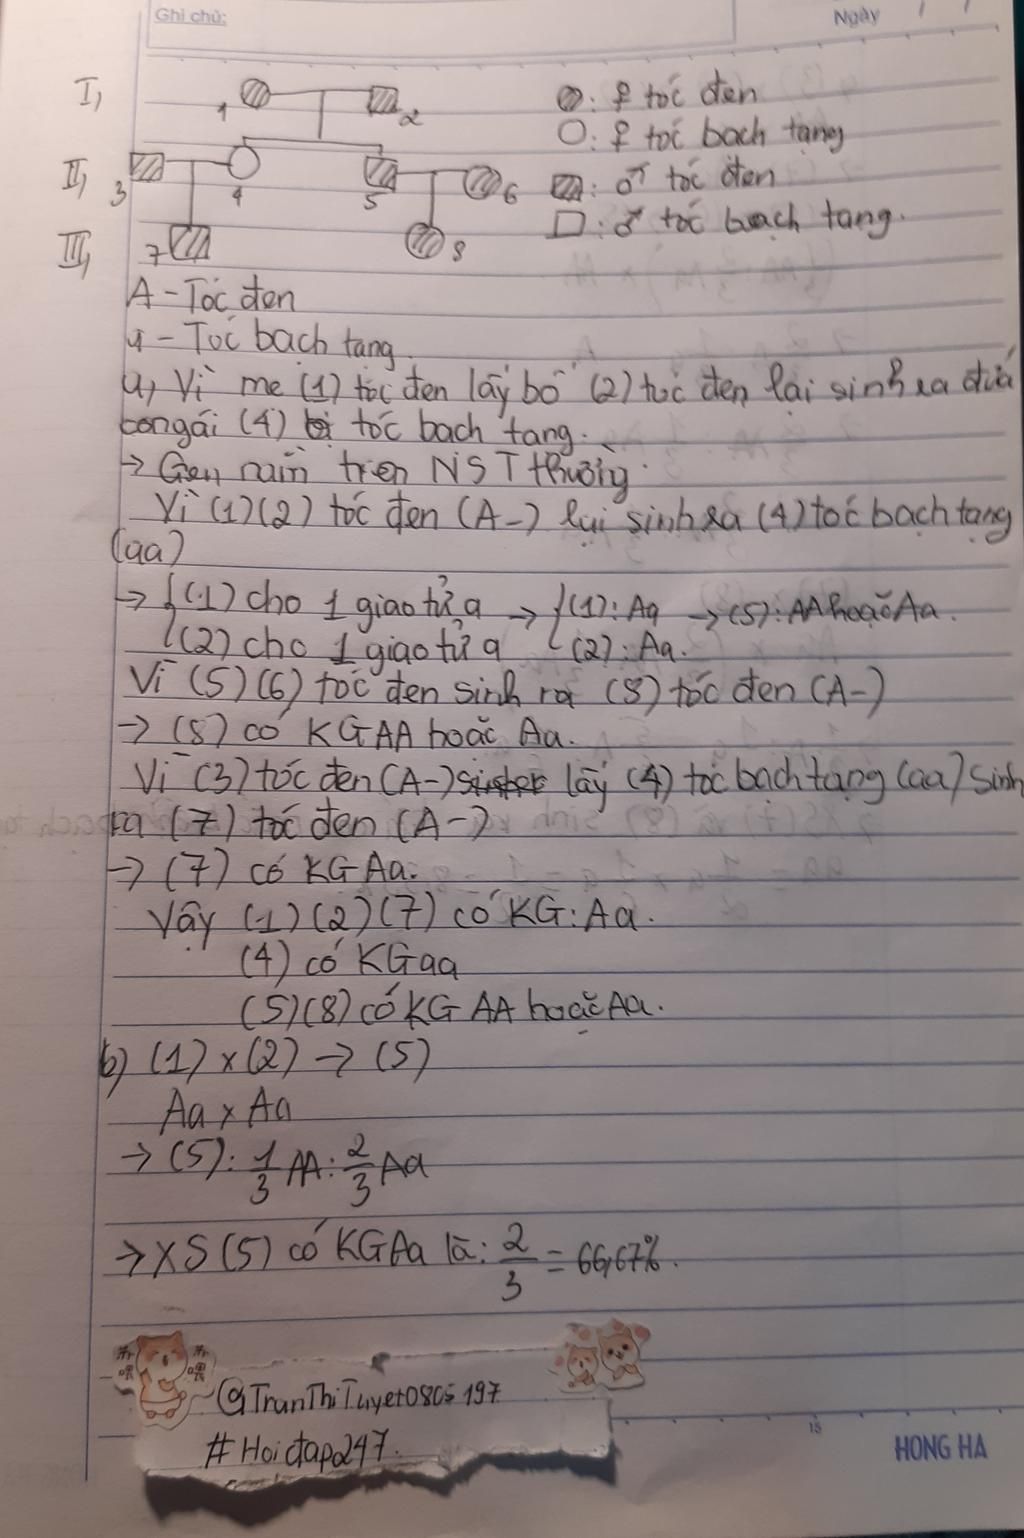 Ghi chú:
Ngày / /
I,
1
2
: ♀ tóc đen
: ♀ tóc bạch tạng
II,
3
4
5
6
: ♂ tóc đen
: ♂ tóc bạch tạng.
III,
7
8
A - Tóc đen
a - Tóc bạch tạng.
a, Vì mẹ (1) tóc đen lấy bố (2) tóc đen lại sinh ra đứa
con gái (4) bị tóc bạch tạng.
→ Gen nằm trên NST thường.
Vì (1)(2) tóc đen (A-) lại sinh ra (4) tóc bạch tạng
(aa)
→ { (1) cho 1 giao tử a → { (1): Aa → (5): AA hoặc Aa.
(2) cho 1 giao tử a (2): Aa.
Vì (5)(6) tóc đen sinh ra (8) tóc đen (A-)
→ (8) có KG AA hoặc Aa.
Vì (3) tóc đen (A-) lấy (4) tóc bạch tạng (aa) sinh
ra (7) tóc đen (A-)
→ (7) có KG Aa.
Vậy (1)(2)(7) có KG: Aa.
(4) có KG aa
(5)(8) có KG AA hoặc Aa.
b) (1) x (2) → (5)
Aa x Aa
→ (5): 1/3 AA : 2/3 Aa
→ XS (5) có KG Aa là: 2/3 = 66,67%.
@TranThiTuyet0805197
#Hoidap247.
15
HONG HA